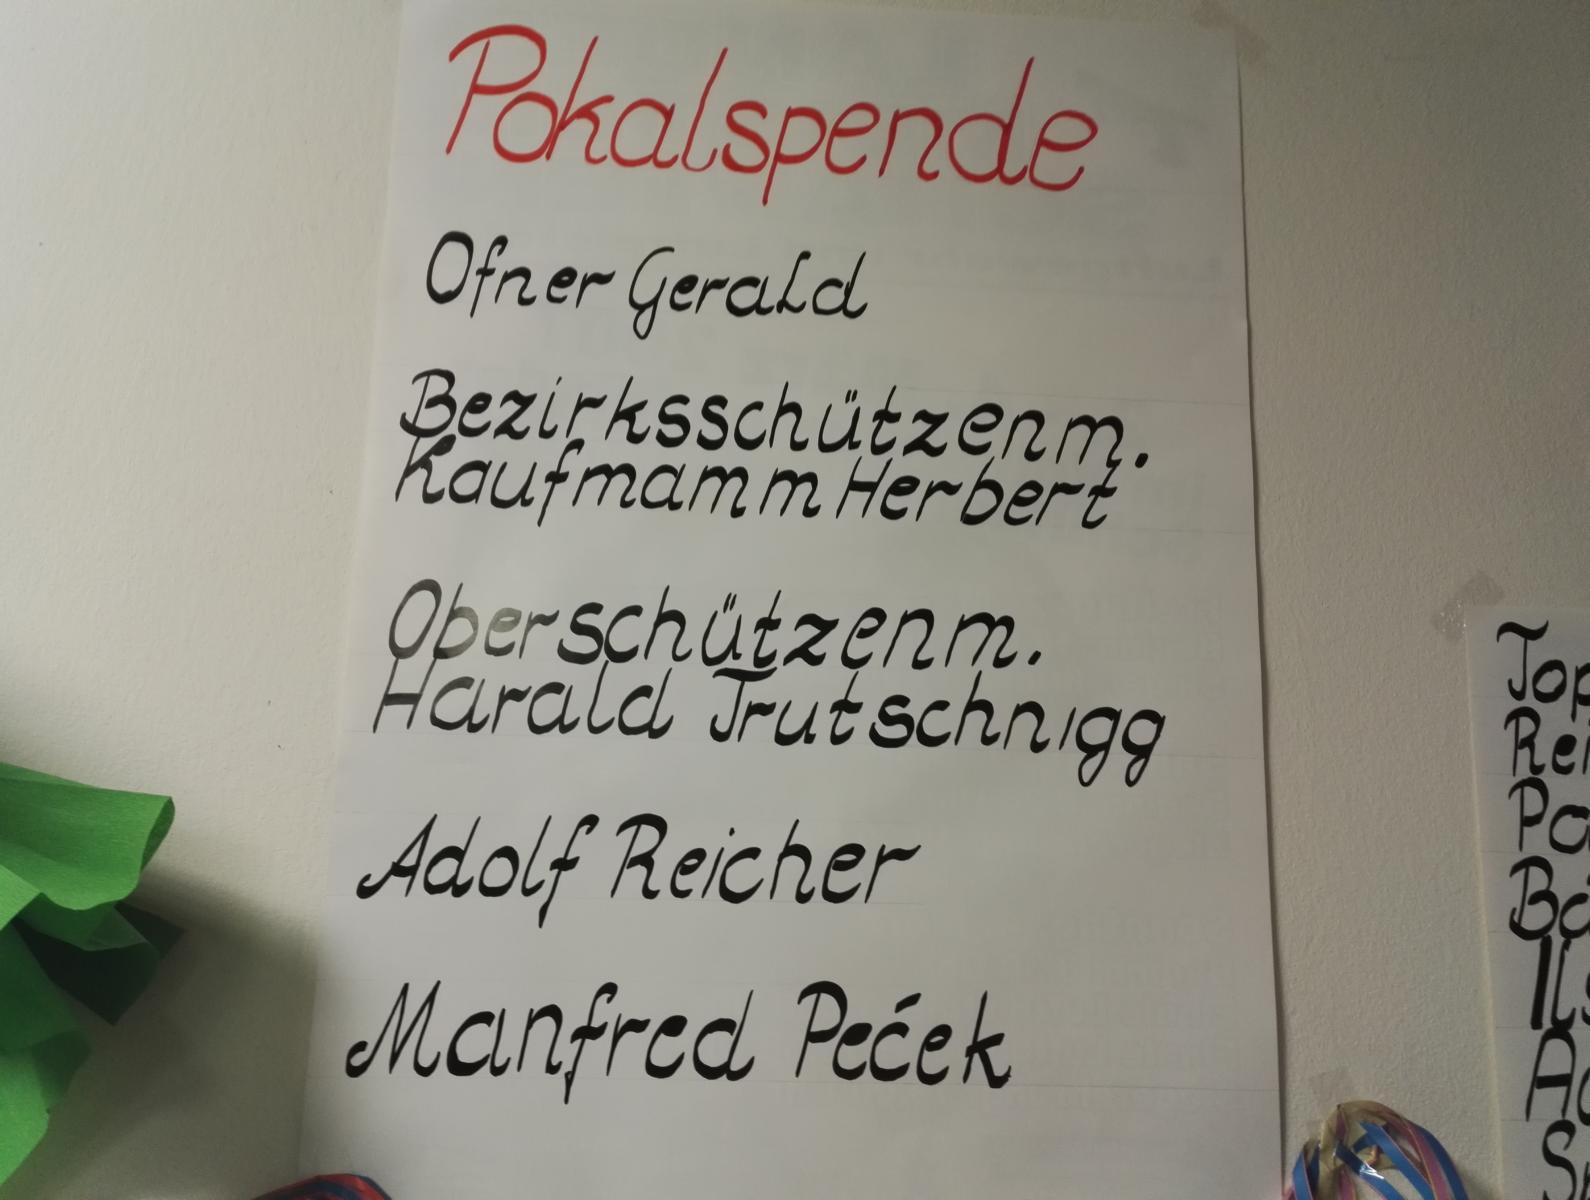 Pokalspende
Ofner Gerald
Bezirksschützenm.
Kaufmamm Herbert
Oberschützenm.
Harald Trutschnigg
Adolf Reicher
Manfred Pećek